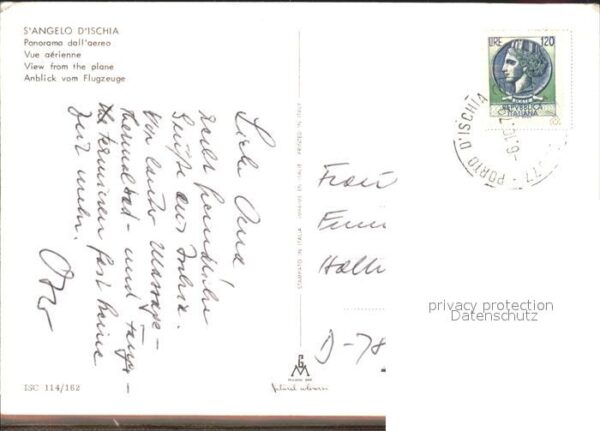 S'ANGELO D'ISCHIA
Panorama dall'aereo
Vue aérienne
View from the plane
Anblick vom Flugzeuge
Liebe Oma
recht herzliche
Grüße aus Ischia.
Vor lauter Massage-
Thermalbad- und Fango-
Terminen fast keine
Zeit mehr.
ISC 114/162
LIRE 120
REPUBBLICA
ITALIANA
PORTO D'ISCHIA
Frau
D-78
privacy protection
Datenschutz